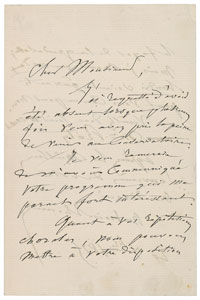 Cher Monsieur,
J'ai regretté d'avoir
été absent lorsque
fois vous avez pris la peine
de venir au Conservatoire.
Je vous remercie
de m'avoir communiqué
votre programme qui me
paraît fort intéressant.
Quant à vos répétitions
chorales, nous pouvons
mettre à votre disposition